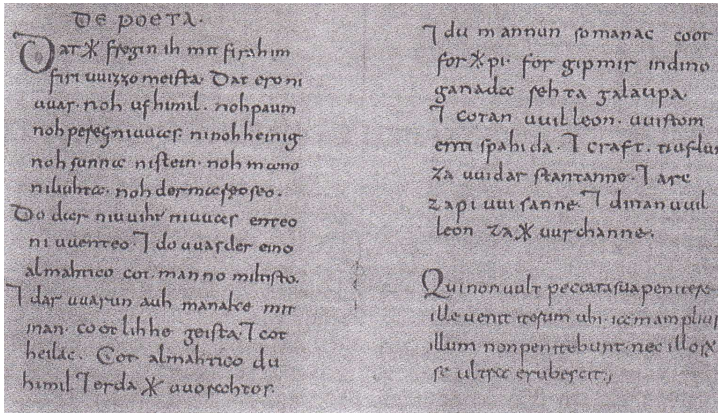 DE POETA.
Dat ᛡ fregin ih mit firahim
firi uuizzo meista. Dat ero ni
uuas. noh ufhimil. noh paum
noh pereg ni uuas. ninohheinig
noh sunna nistein. noh mano
niliuhta. noh der mareoseo.
Do dar niuuiht niuuas enteo
ni uuenteo. ⁊ do uuas der eino
almahtico cot manno miltisto.
⁊ dar uuarun auh manake mit
inan. cootlihhe geista. ⁊ cot
heilac. Cot almahtico du
himil ⁊ erda ᛡ uuorahtos.
⁊ du mannun somanac coot
for ᛡ pi. for gipmir indino
ganada rehta galaupa.
⁊ cotan uuilleon. uuistom
enti spahida. ⁊ craft. tiuflun
za uuidar stantanne. ⁊ arc
zapi uuisanne. ⁊ dinan uuil
leon za ᛡ uurchanne.
Qui non uult peccata sua penitere
ille uenit iterum ubi
illum non penitebunt. nec
se ultra erubescit.